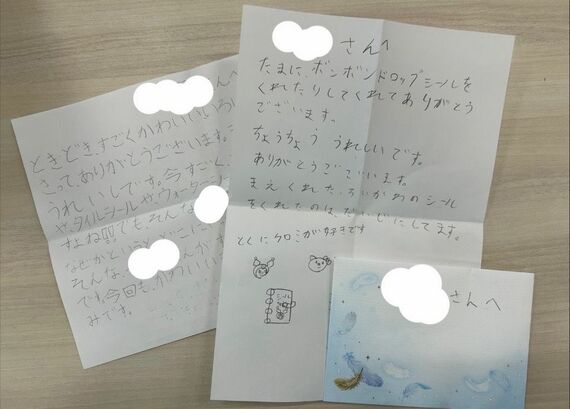 さんへ
ときどき、すごくかわいい
さって、ありがとうございます。
うれしいです。今すごく
や、タイルシールや、ウォーター
すよね!!でもそんな
なぜかというと、どこに
そんな、
です。今回も、かわいい
みです。
さんへ
たまに、ボンボンドロップシールを
くれたりしてくれてありがとう
ございます。
ちょうちょう うれしいです。
ありがとうございます。
まえくれた、ちいかわのシール
をくれたのは、だいじにしてます。
とくにクロミが好きです
シール
さんへ